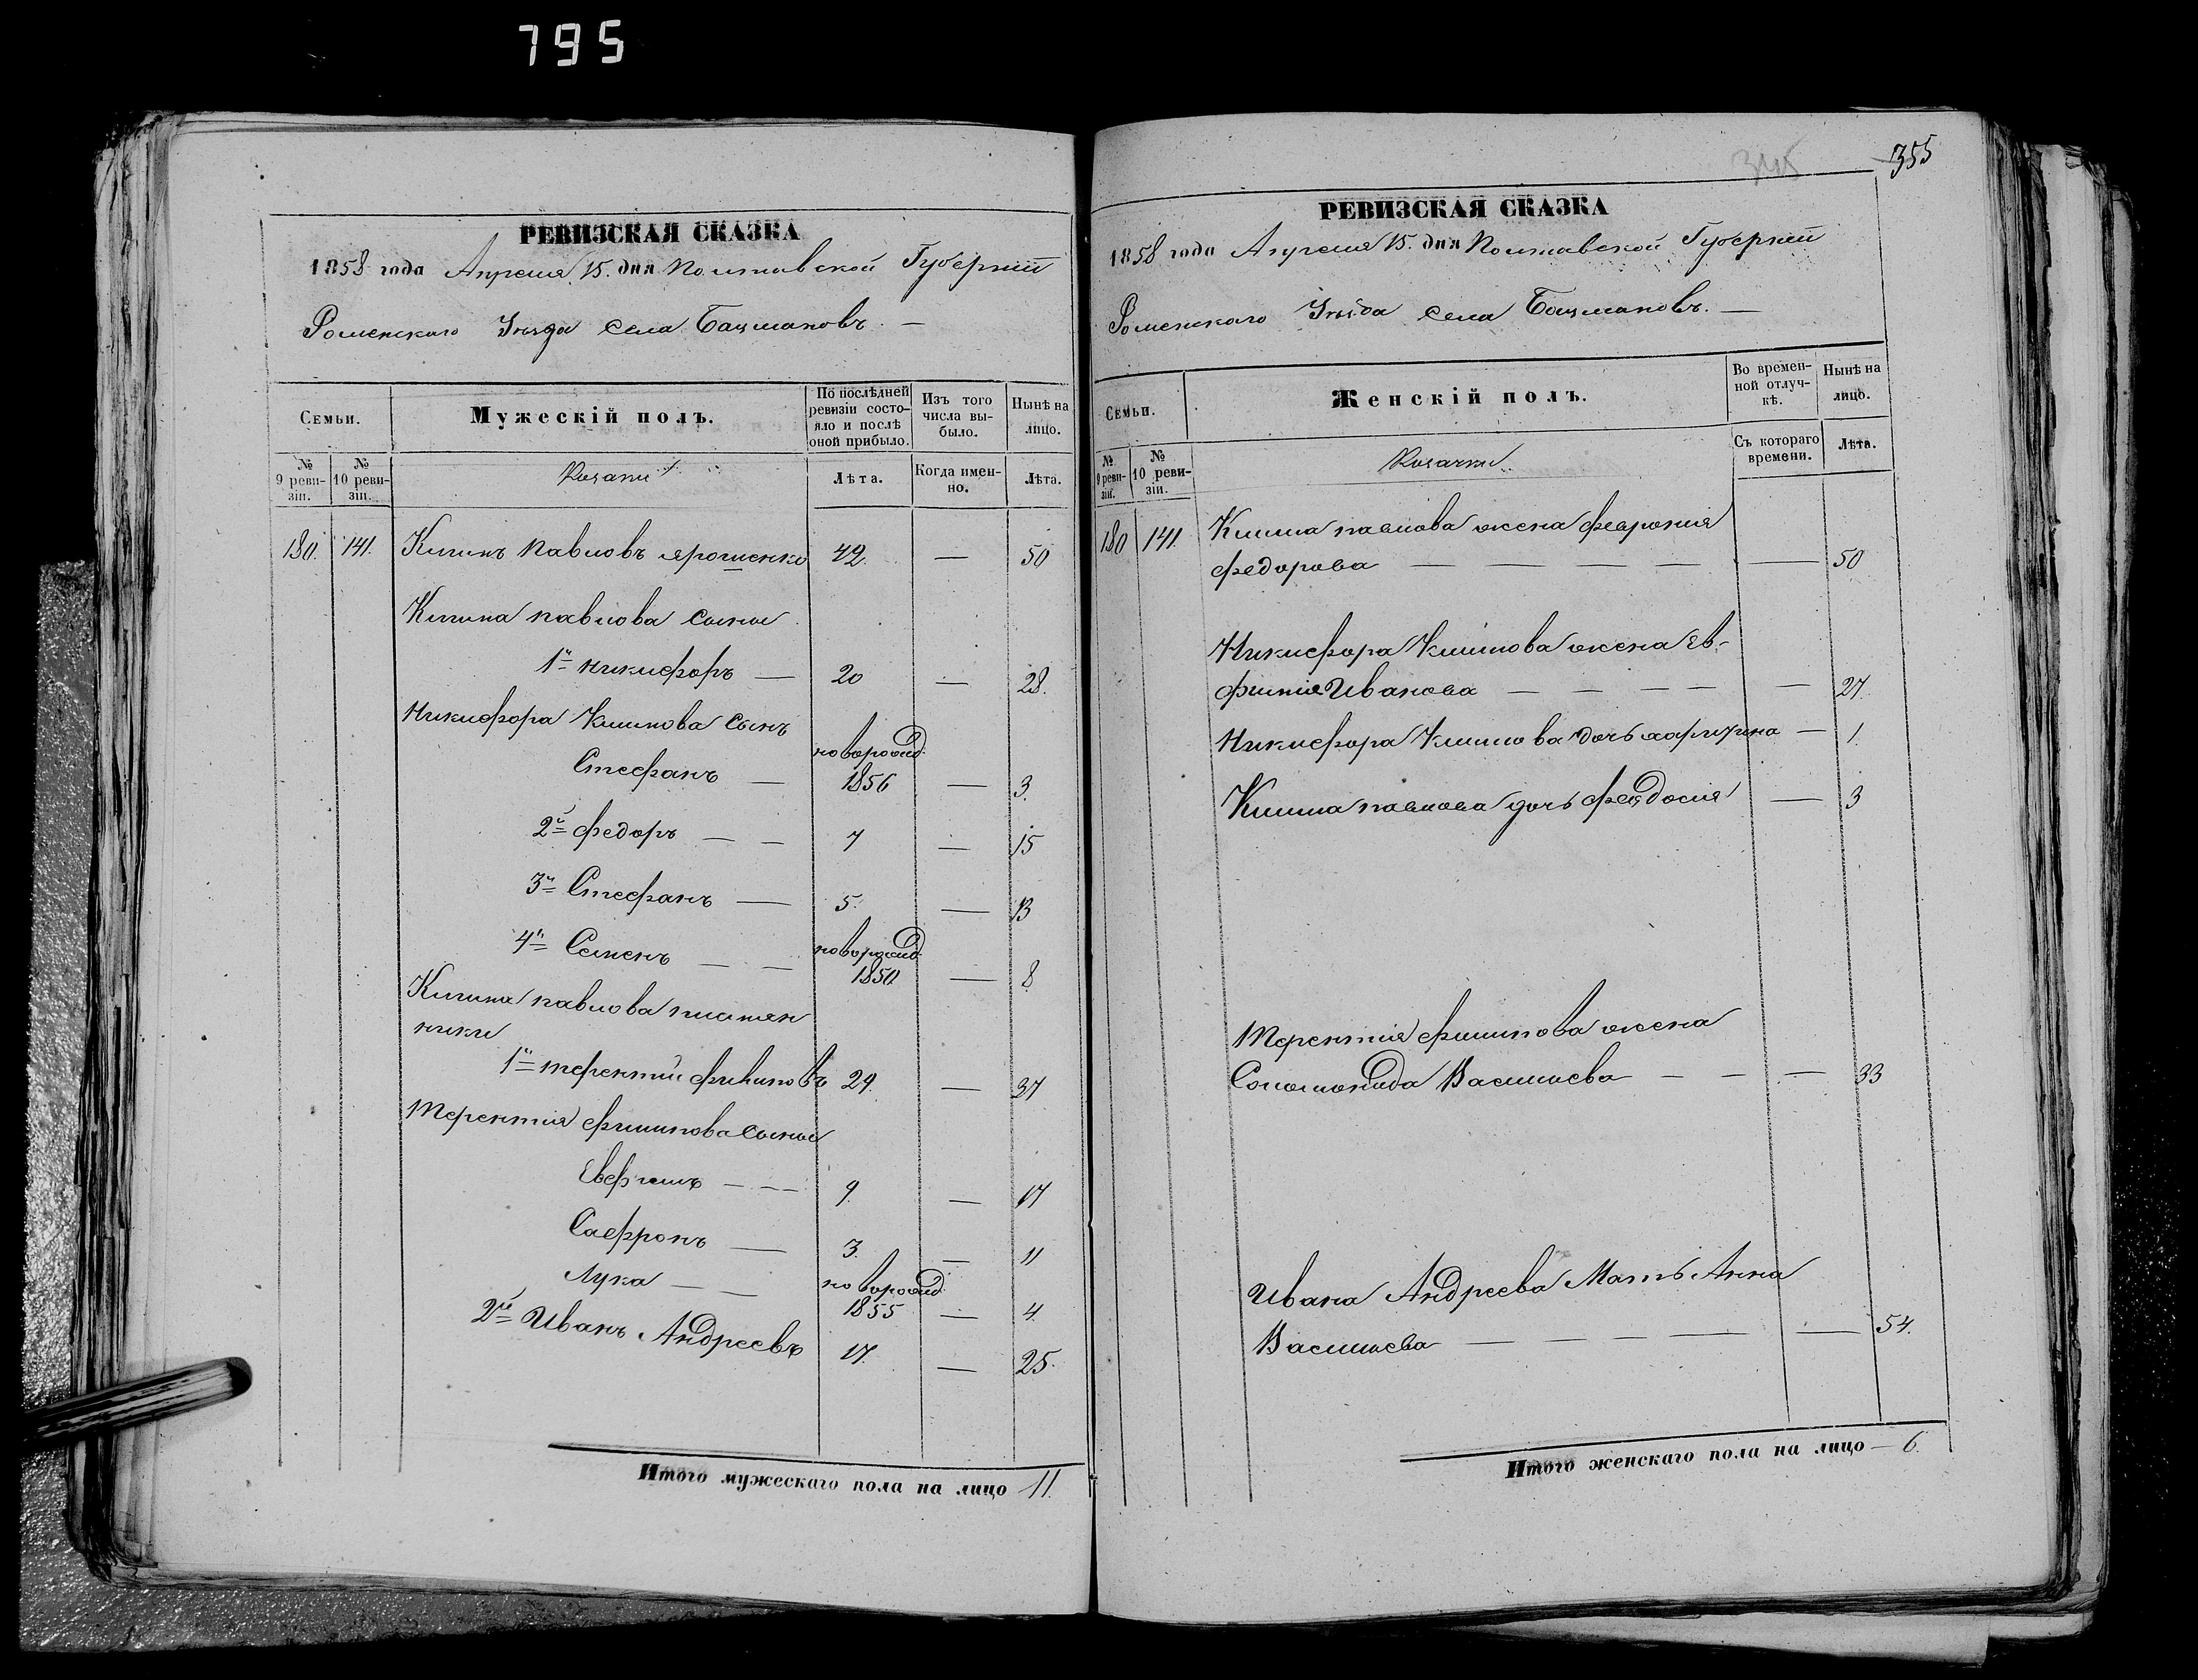 795
РЕВИЗСКАЯ СКАЗКА
1858 года Апреля 15. дня Полтавской Губерніи
Роменскаго Уѣзда села Бацмановъ. —
Семьи.
Мужескій полъ.
По послѣдней ревизіи состояло и послѣ оной прибыло.
Изъ того числа выбыло.
Нынѣ на лицо.
№ 9 ревизіи.
№ 10 ревизіи.
Козаки
Лѣта.
Когда именно.
Лѣта.
180. 141. Климъ Павловъ Ярошенко 42. — 50
Клима Павлова сыны
1й Никифоръ — 20 — 28.
Никифора Климова сынъ
Стефанъ — новорожд. 1856 — 3.
2й Федоръ — — 7 — 15
3й Стефанъ — 5. — 13
4й Семенъ — — новорожд. 1850. — 8
Клима Павлова племян
ники
1й Терентій Филиповъ 29. — 37
Терентія Филипова сыны
9. — 17
Сафронъ — 3. — 11
Лука — — новорожд. 1855 — 4.
2й Иванъ Андреевъ 17. — 25.
Итого мужескаго пола на лицо 11.
345
355
РЕВИЗСКАЯ СКАЗКА
1858 года Апреля 15. дня Полтавской Губерніи
Роменскаго Уѣзда села Бацмановъ. —
Семьи.
Женскій полъ.
Во временной отлучкѣ.
Нынѣ на лицо.
№ 9 ревизіи.
№ 10 ревизіи.
Козачки
Съ котораго времени.
Лѣта.
180 141. Клима Павлова жена Феврония
Федорова — — — — — 50
Никифора Климова жена Ев-
фимія Иванова — — — — — 27.
Никифора Климова дочь Харитина — 1.
Клима Павлова дочь Феодосія — 3
Терентія Филипова жена
Соломонида Васильева — — — 33
Ивана Андреева Мать Анна
Васильева — — — — — 54.
Итого женскаго пола на лицо — 6.